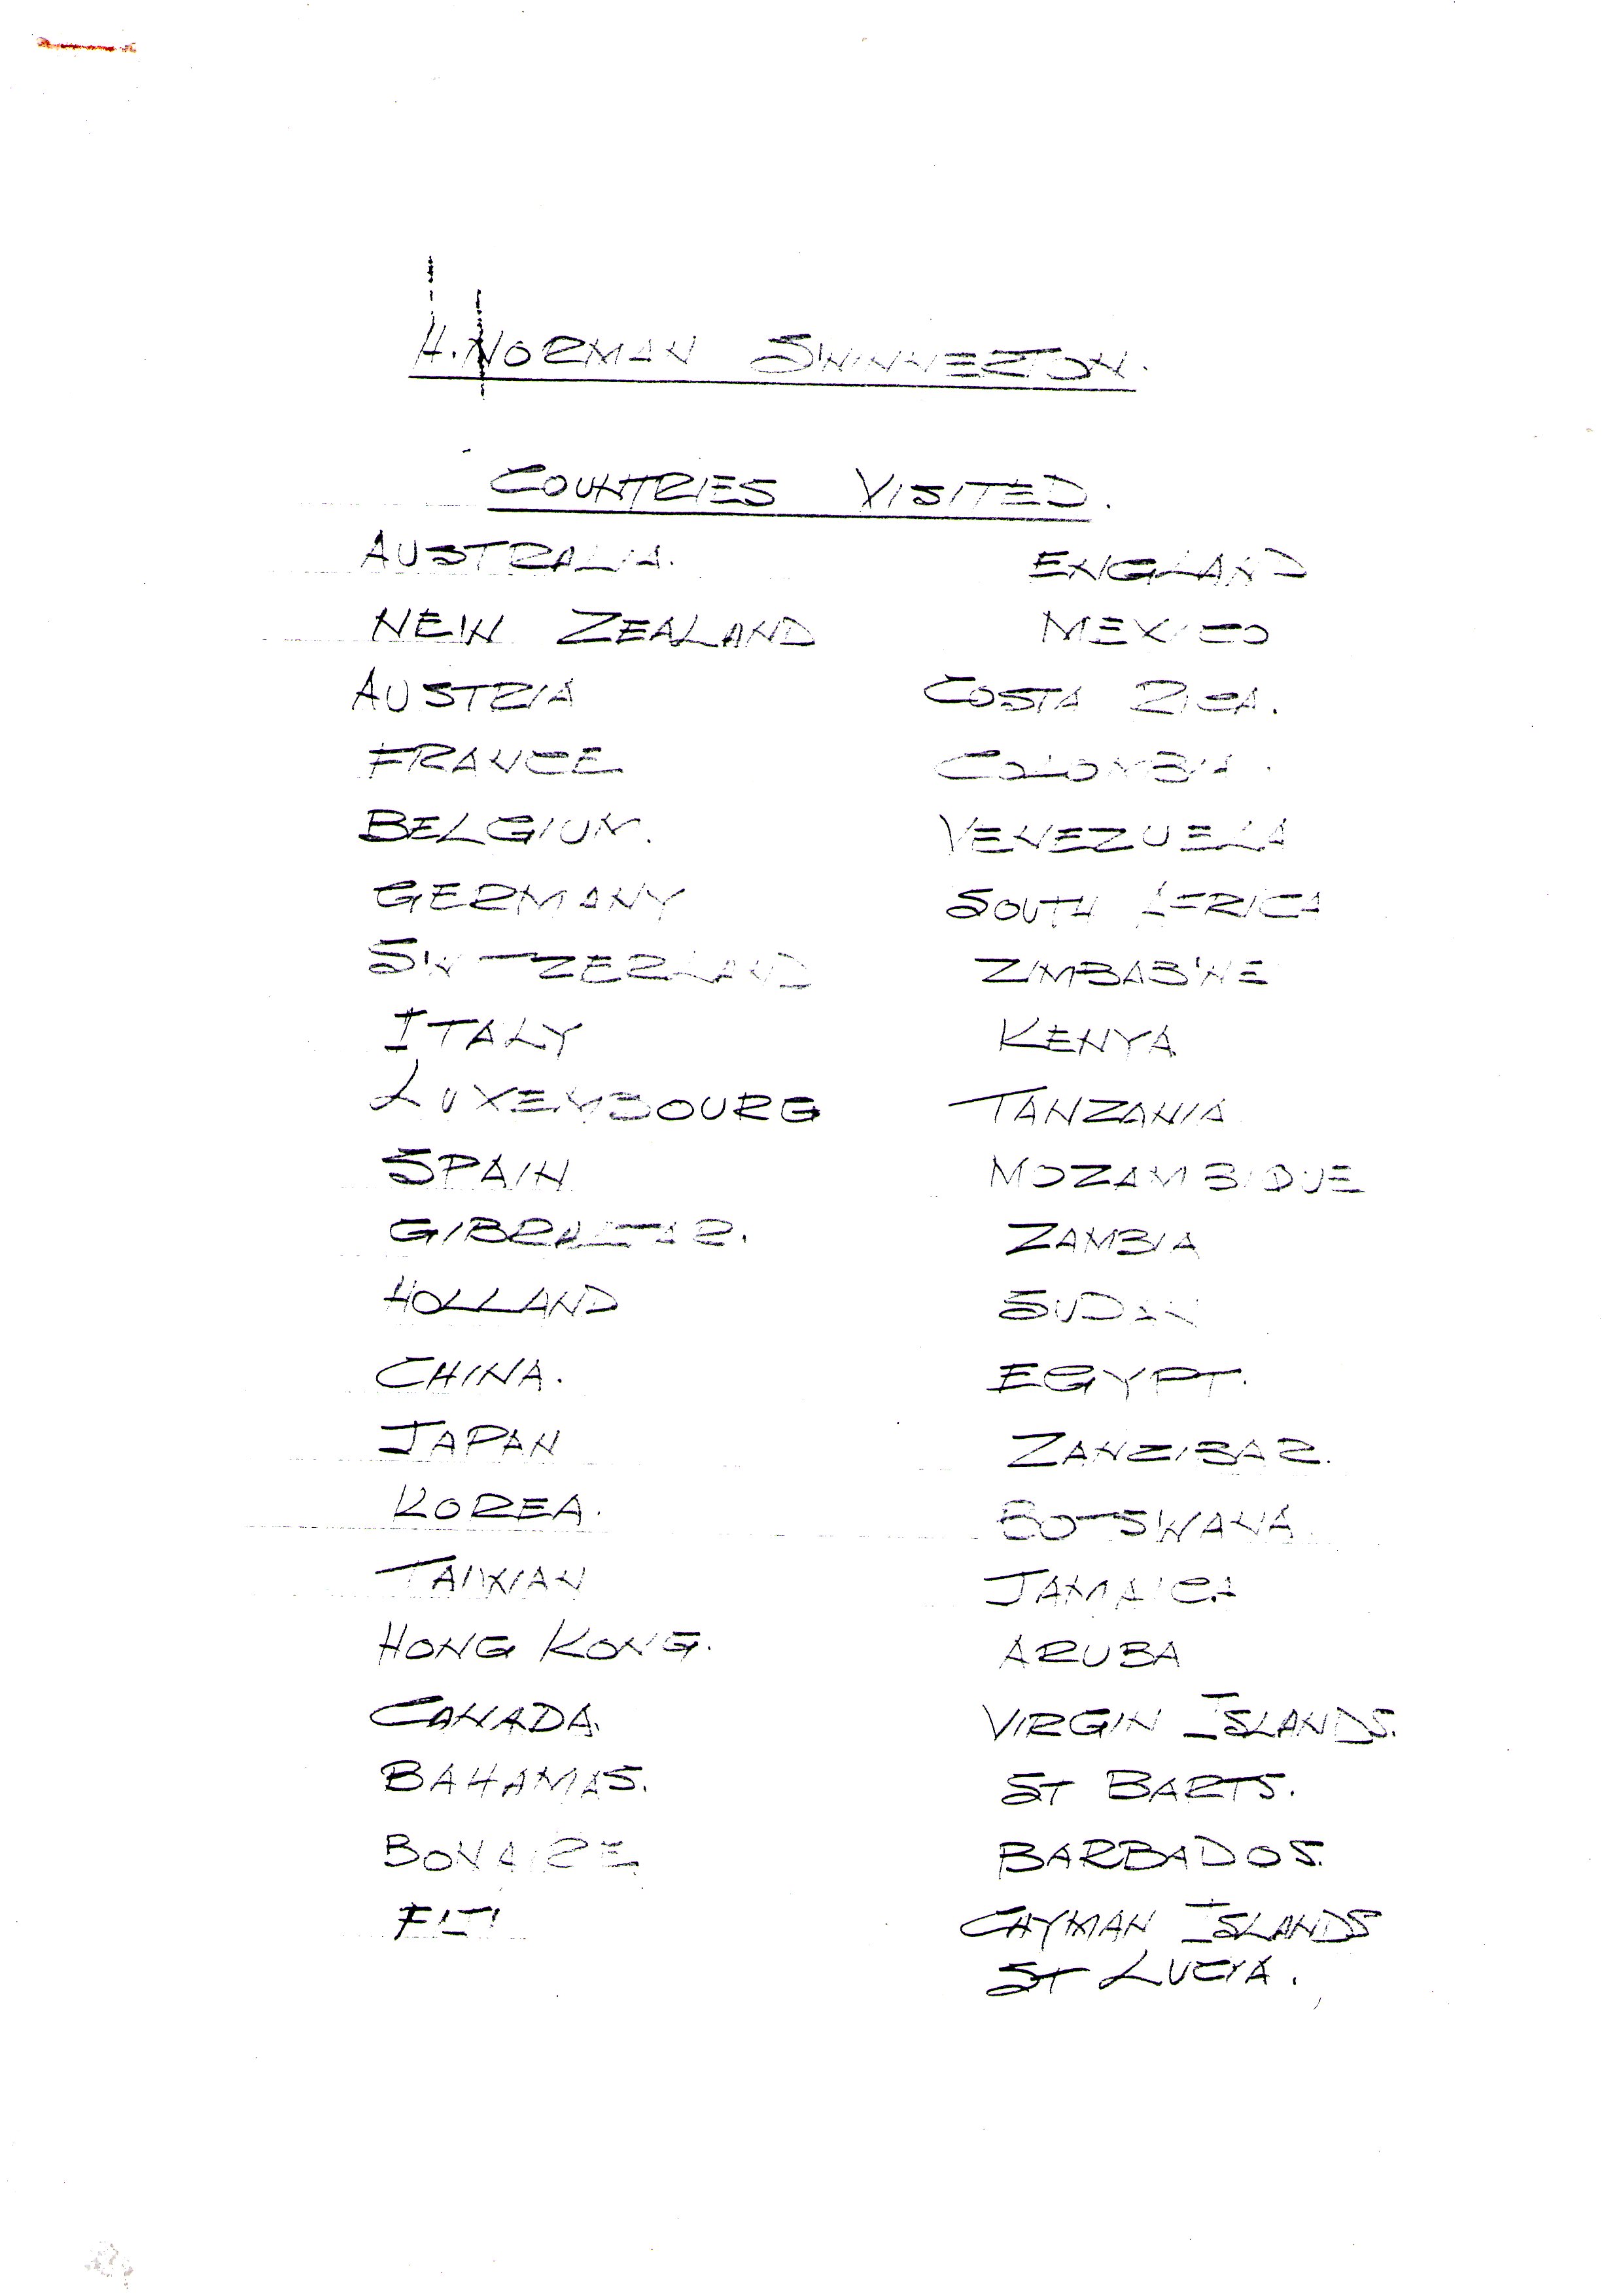 H. NORMAN SWINNERTON.
COUNTRIES VISITED.
AUSTRALIA.
NEW ZEALAND
AUSTRIA
FRANCE
BELGIUM.
GERMANY
SWITZERLAND
ITALY
LUXEMBOURG
SPAIN
GIBRALTAR.
HOLLAND
CHINA.
JAPAN
KOREA.
TAIWAN
HONG KONG.
CANADA.
BAHAMAS.
BONAIRE
FIJI
ENGLAND
MEXICO
COSTA RICA.
COLOMBIA.
VENEZUELA
SOUTH AFRICA
ZIMBABWE
KENYA
TANZANIA
MOZAMBIQUE
ZAMBIA
SUDAN
EGYPT.
ZANZIBAR.
BOTSWANA.
JAMAICA
ARUBA
VIRGIN ISLANDS.
ST BARTS.
BARBADOS.
CAYMAN ISLANDS
ST LUCIA.